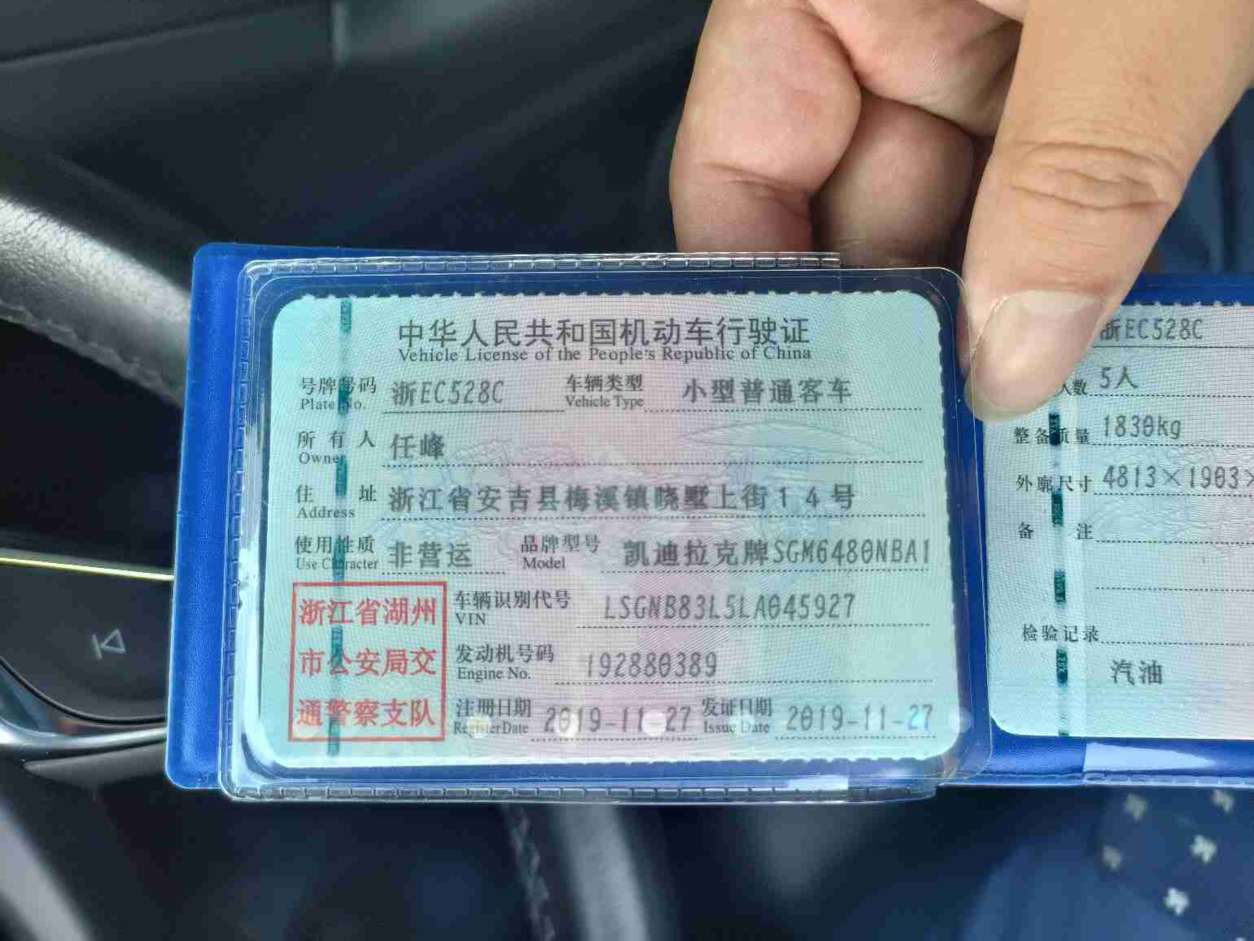 中华人民共和国机动车行驶证
Vehicle License of the People's Republic of China
号牌号码 浙EC528C 车辆类型 小型普通客车
Plate No. Vehicle Type
所有人 任峰
Owner
住址 浙江省安吉县梅溪镇晓墅上街14号
Address
使用性质 非营运 品牌型号 凯迪拉克牌SGM6480NBA1
Use Character Model
浙江省湖州
市公安局交
通警察支队
车辆识别代号 LSGNB83L5LA045927
VIN
发动机号码 192880389
Engine No.
注册日期 2019-11-27 发证日期 2019-11-27
Register Date Issue Date
浙EC528C
人数 5人
整备质量 1830kg
外廓尺寸 4813×1903×
备注
检验记录
汽油